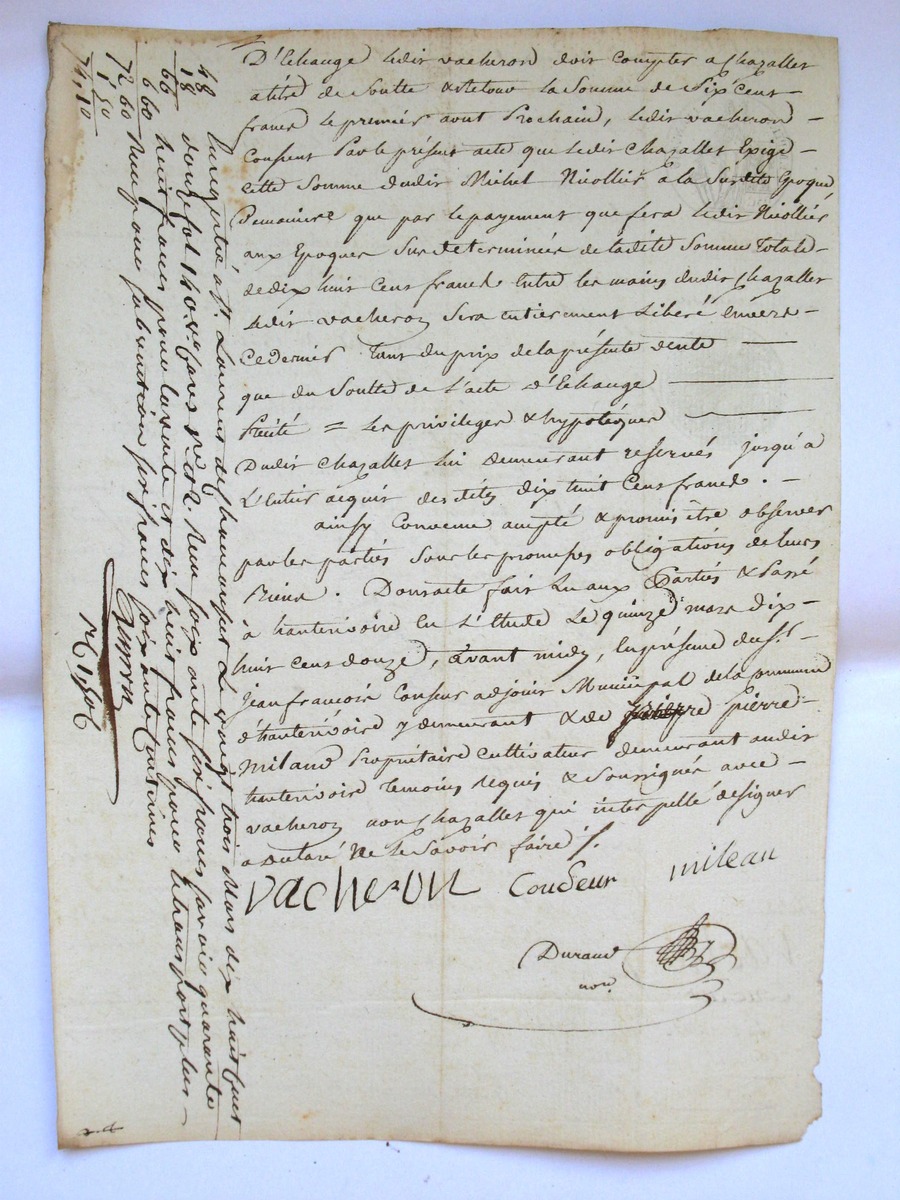 D'Echange ledit vacheron doit compter a Chazallet
atitre de Soulte & Retour la Somme de Six Cent
francs le premier aout Prochain, ledit vacheron
Consent Par le présent acte que ledit Chazallet Exige
Cette Somme dudit Michel Nicollier a la Surdite Epoque
Demaniere que par le payement que fera ledit Nicollier
aux Epoques Sus determinées de ladite Somme Totale
de dix huit Cent francs Entre les mains dudit Chazallet
ledit vacheron Sera entierement Liberé envers
Ce dernier tant du prix de la présente vente
que du Soulte de l'acte d'Echange
Précité = Les privileges & hypoteques
Dudit Chazallet lui demeurant reservés jusqu'a
L'entier acquit desdits dix huit Cent francs.
ainsy Convenu accepté & promis être observer
par les parties Sous les promesses obligations de leurs
Biens. Dont acte fait Lu aux Parties & Passé
à hauterivoire En l'Etude Le quinze mars dix
huit cent douze, avant midy, En présence du Sr.
Jean francois Couseur adjoint Municipal de la commune
d'hauterivoire y demeurant & de pierre
Miland Propriétaire cultivateur demeurant audit
hauterivoire temoins requis & Soussignés avec
vacheron non Chazallet qui interpellé de signer
a Declaré Ne le Savoir faire /.
vacheron Couseur mileau
Durand
nore
Enregistré à St. Laurent de chamousset Le vingt trois Mars dix huit Cent
douze fol 140 vo. Cases Reçu soixante six francs savoir quarante
huit francs pour la vente et dix huit francs pour le transport plus
six francs soixante Centimes
48
18
66
6 60
72 60
1 50
74,10